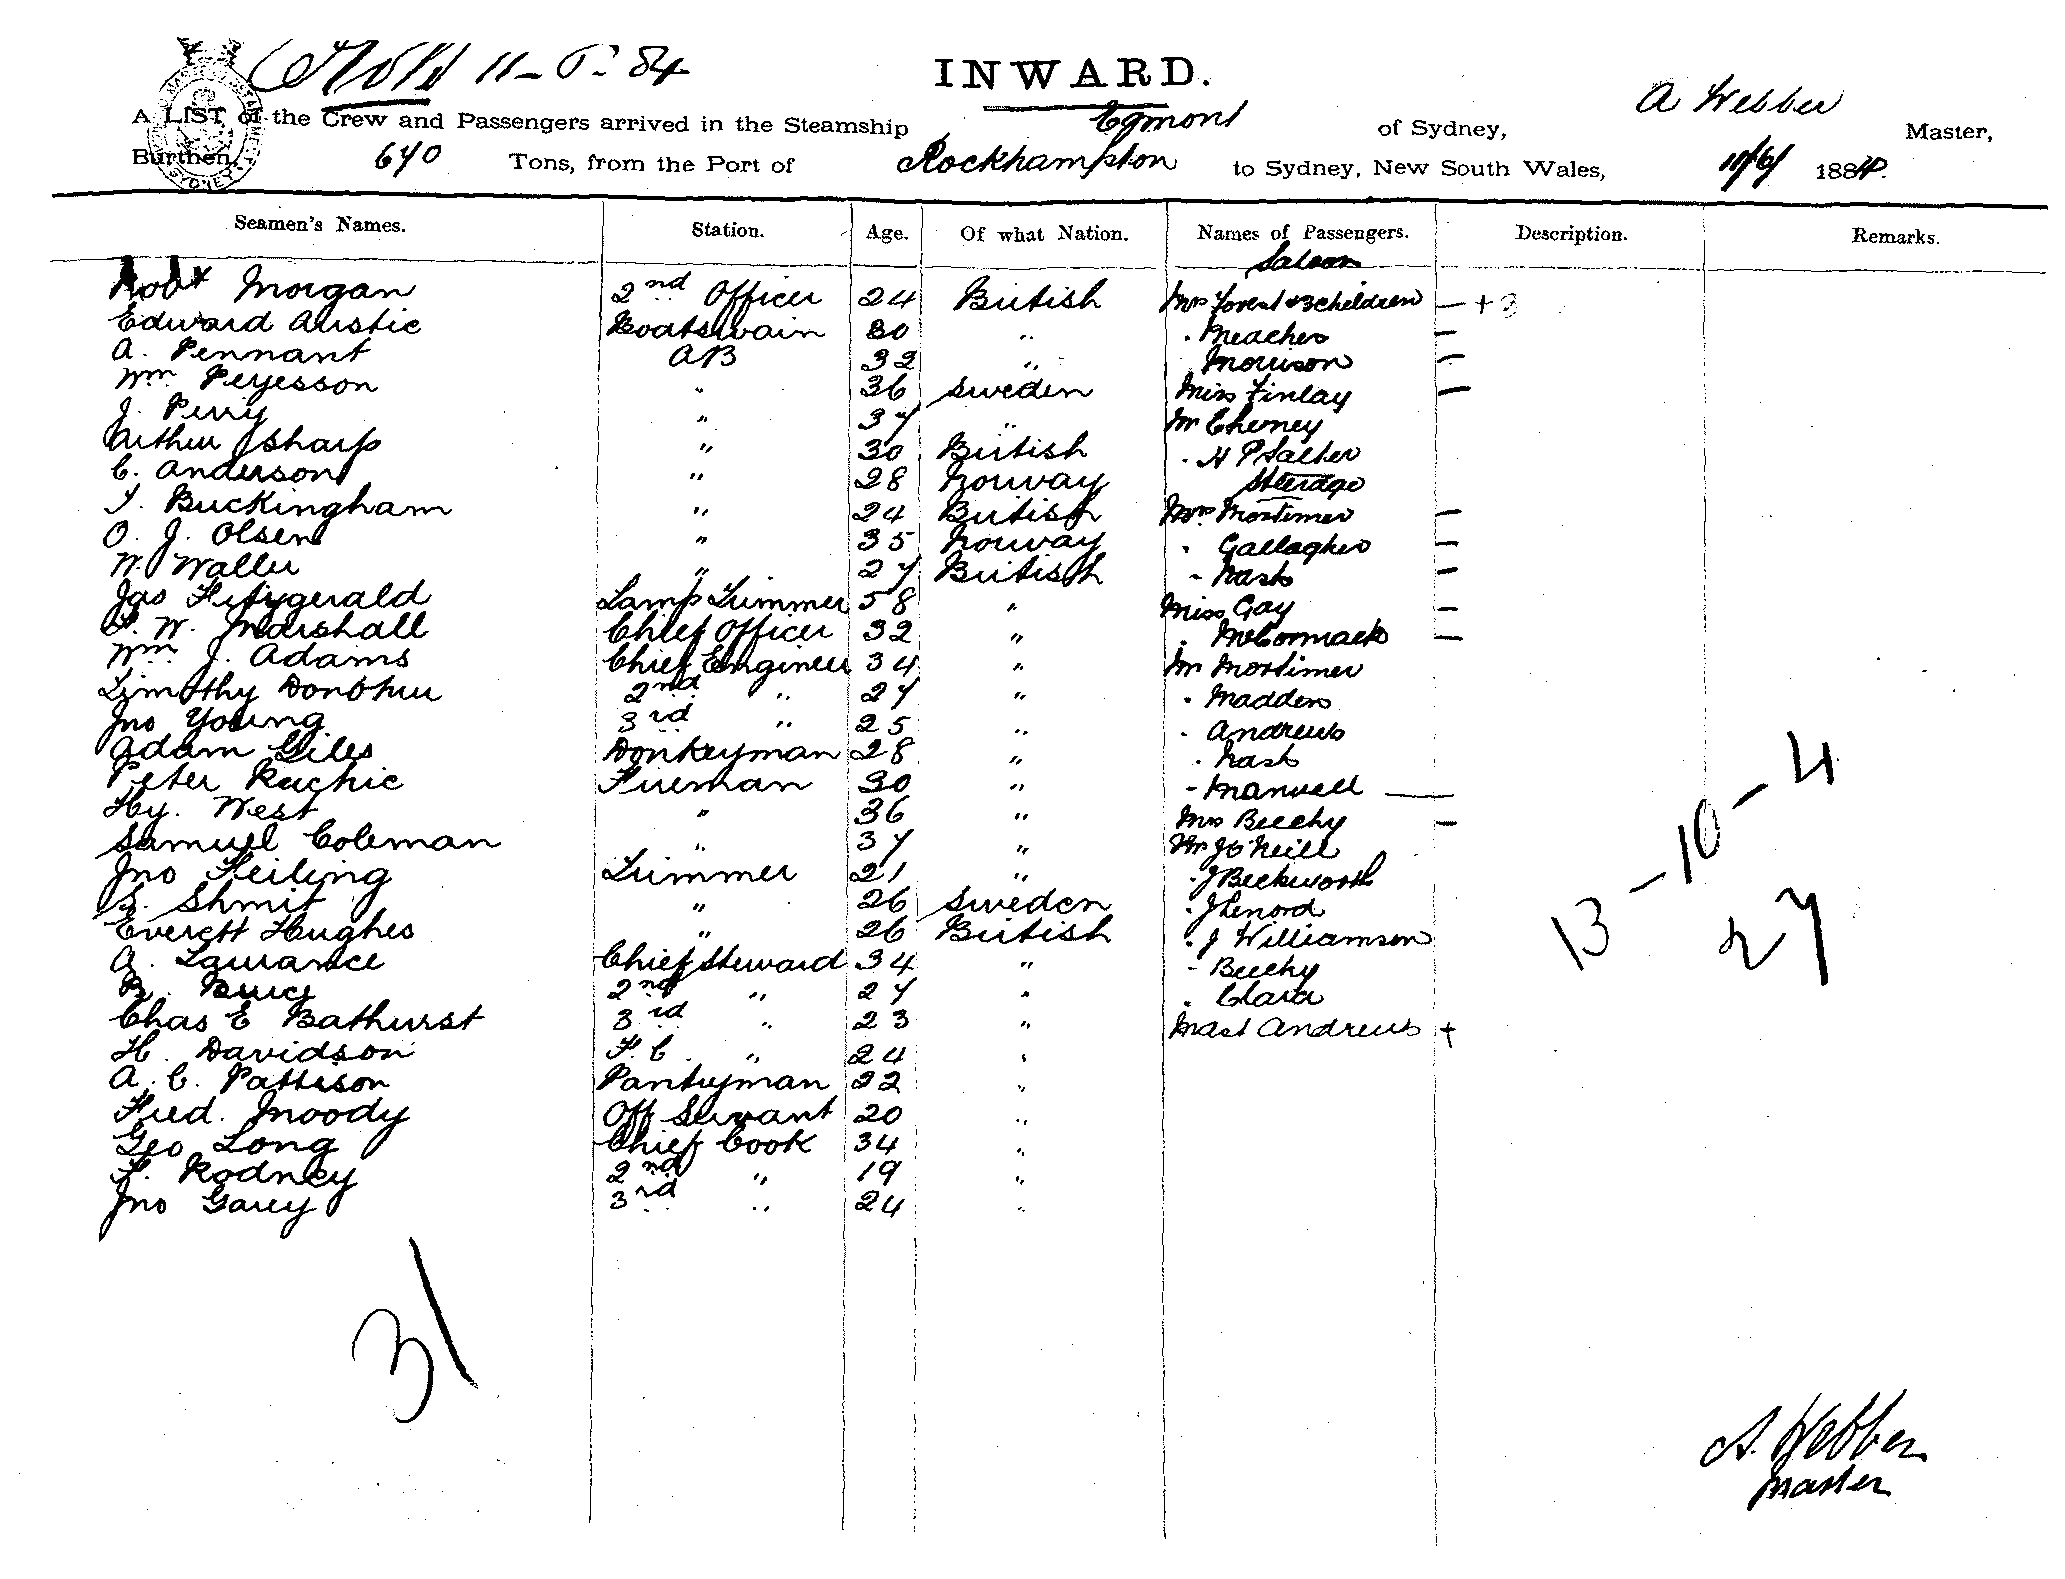 11-6-84
INWARD.
A LIST of the Crew and Passengers arrived in the Steamship Egmont of Sydney, A Webber Master,
Burthen, 640 Tons, from the Port of Rockhampton to Sydney, New South Wales, 10/6/ 1884.
Seamen's Names. Station. Age. Of what Nation. Names of Passengers. Description. Remarks.
Saloon
Robt Morgan 2nd Officer 24 British Mrs Forest & 3 children — + 3
Edward Austic Boatswain 30 " . Meacher —
A. Pennant AB 32 " Morrison —
Wm Peyesson " 36 Sweden Miss Finlay —
J. Perry " 37 " Mr Cherney
Arthur Sharp " 30 British . H P Salter
C. Anderson " 28 Norway Steerage
T. Buckingham " 24 British Mrs Mortimer —
O. J. Olsen " 35 Norway . Gallagher —
W. Waller " 27 British - Nash —
Jas Fitzgerald Lamp Trimmer 58 " Miss Gay —
F. W. Marshall Chief Officer 32 " . McCormack —
Wm J. Adams Chief Engineer 34 " Mr Mortimer
Timothy Donohue 2nd " 27 " . Madden
Jno Young 3rd " 25 " . Andrews
Adam Giles Donkeyman 28 " . Nash
Peter Ruchie Fireman 30 " - Manuell —
Hy. West " 36 " Mrs Beechy —
Samuel Coleman " 37 " Mr J O'Neill
Jno Feiling Trimmer 21 " . J Beckworth
S. Shmit " 26 Sweden . J Lenord
Everett Hughes " 26 British . J Williamson
A. Lawrance Chief Steward 34 " - Beechy
B. 2nd " 27 " . Clara
Chas E Bathurst 3rd " 23 " Mast Andrews +
H. Davidson F. C. " 24 "
A. C. Pattison Pantryman 22 "
Fred. Moody Off Servant 20 "
Geo Long Chief Cook 34 "
F. Rodney 2nd " 19 "
Jno Garey 3rd " 24 "
13 - 10 - 4
27
31
A. Webber
Master